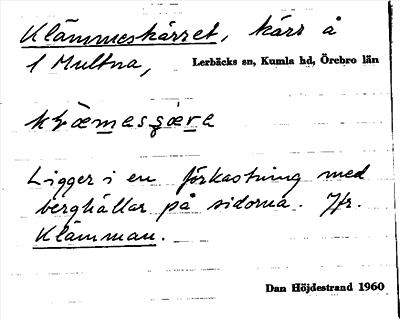 Klämmeskärret, kärr å
1 Multna, Lerbäcks sn, Kumla hd, Örebro län
Ligger i en förkastning med
berghällar på sidorna. Jfr.
Klämman.
Dan Höjdestrand 1960